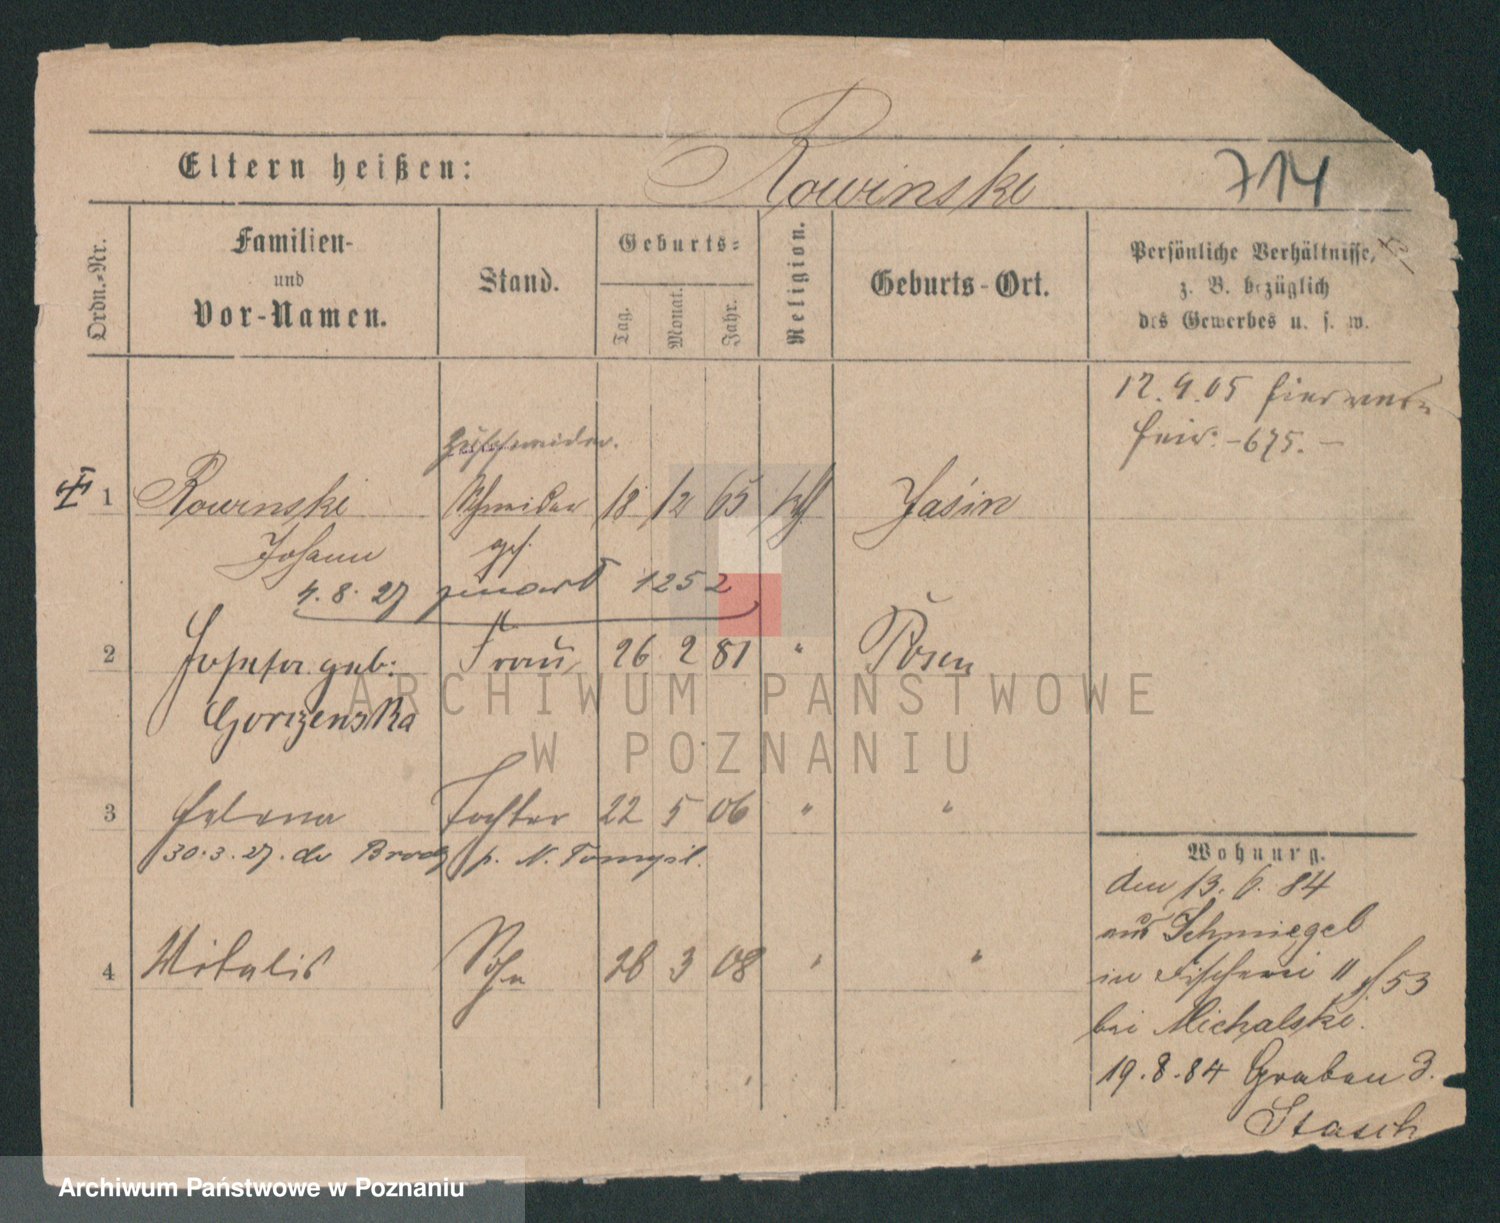 Eltern heißen: Rowinski 714
Ordn.-Nr. Familien- und Vor-Namen. Stand. Geburts- Tag. Monat. Jahr. Religion. Geburts-Ort. Persönliche Verhältnisse, z. B. bezüglich des Gewerbes u. s. w.
12.9.05
675.
Zuschneider.
1 Rowinski Schneider 18 12 65 kth Jasin
Johann ges.
4.8.27 zmarł 1252
2 Josefa geb: Frau 26 2 81 " Posen
Gorizenska
3 Helena Tochter 22 5 06 " "
30.3.27. do Brody p. N. Tomyśl.
4 Vitalis Sohn 28 3 08 " "
Wohnung.
den 13.6.84
aus Schmiegel
in Fischerei 11 53
bei Michalski.
19.8.84 Graben 3.
Stasch
ARCHIWUM PAŃSTWOWE
W POZNANIU
Archiwum Państwowe w Poznaniu